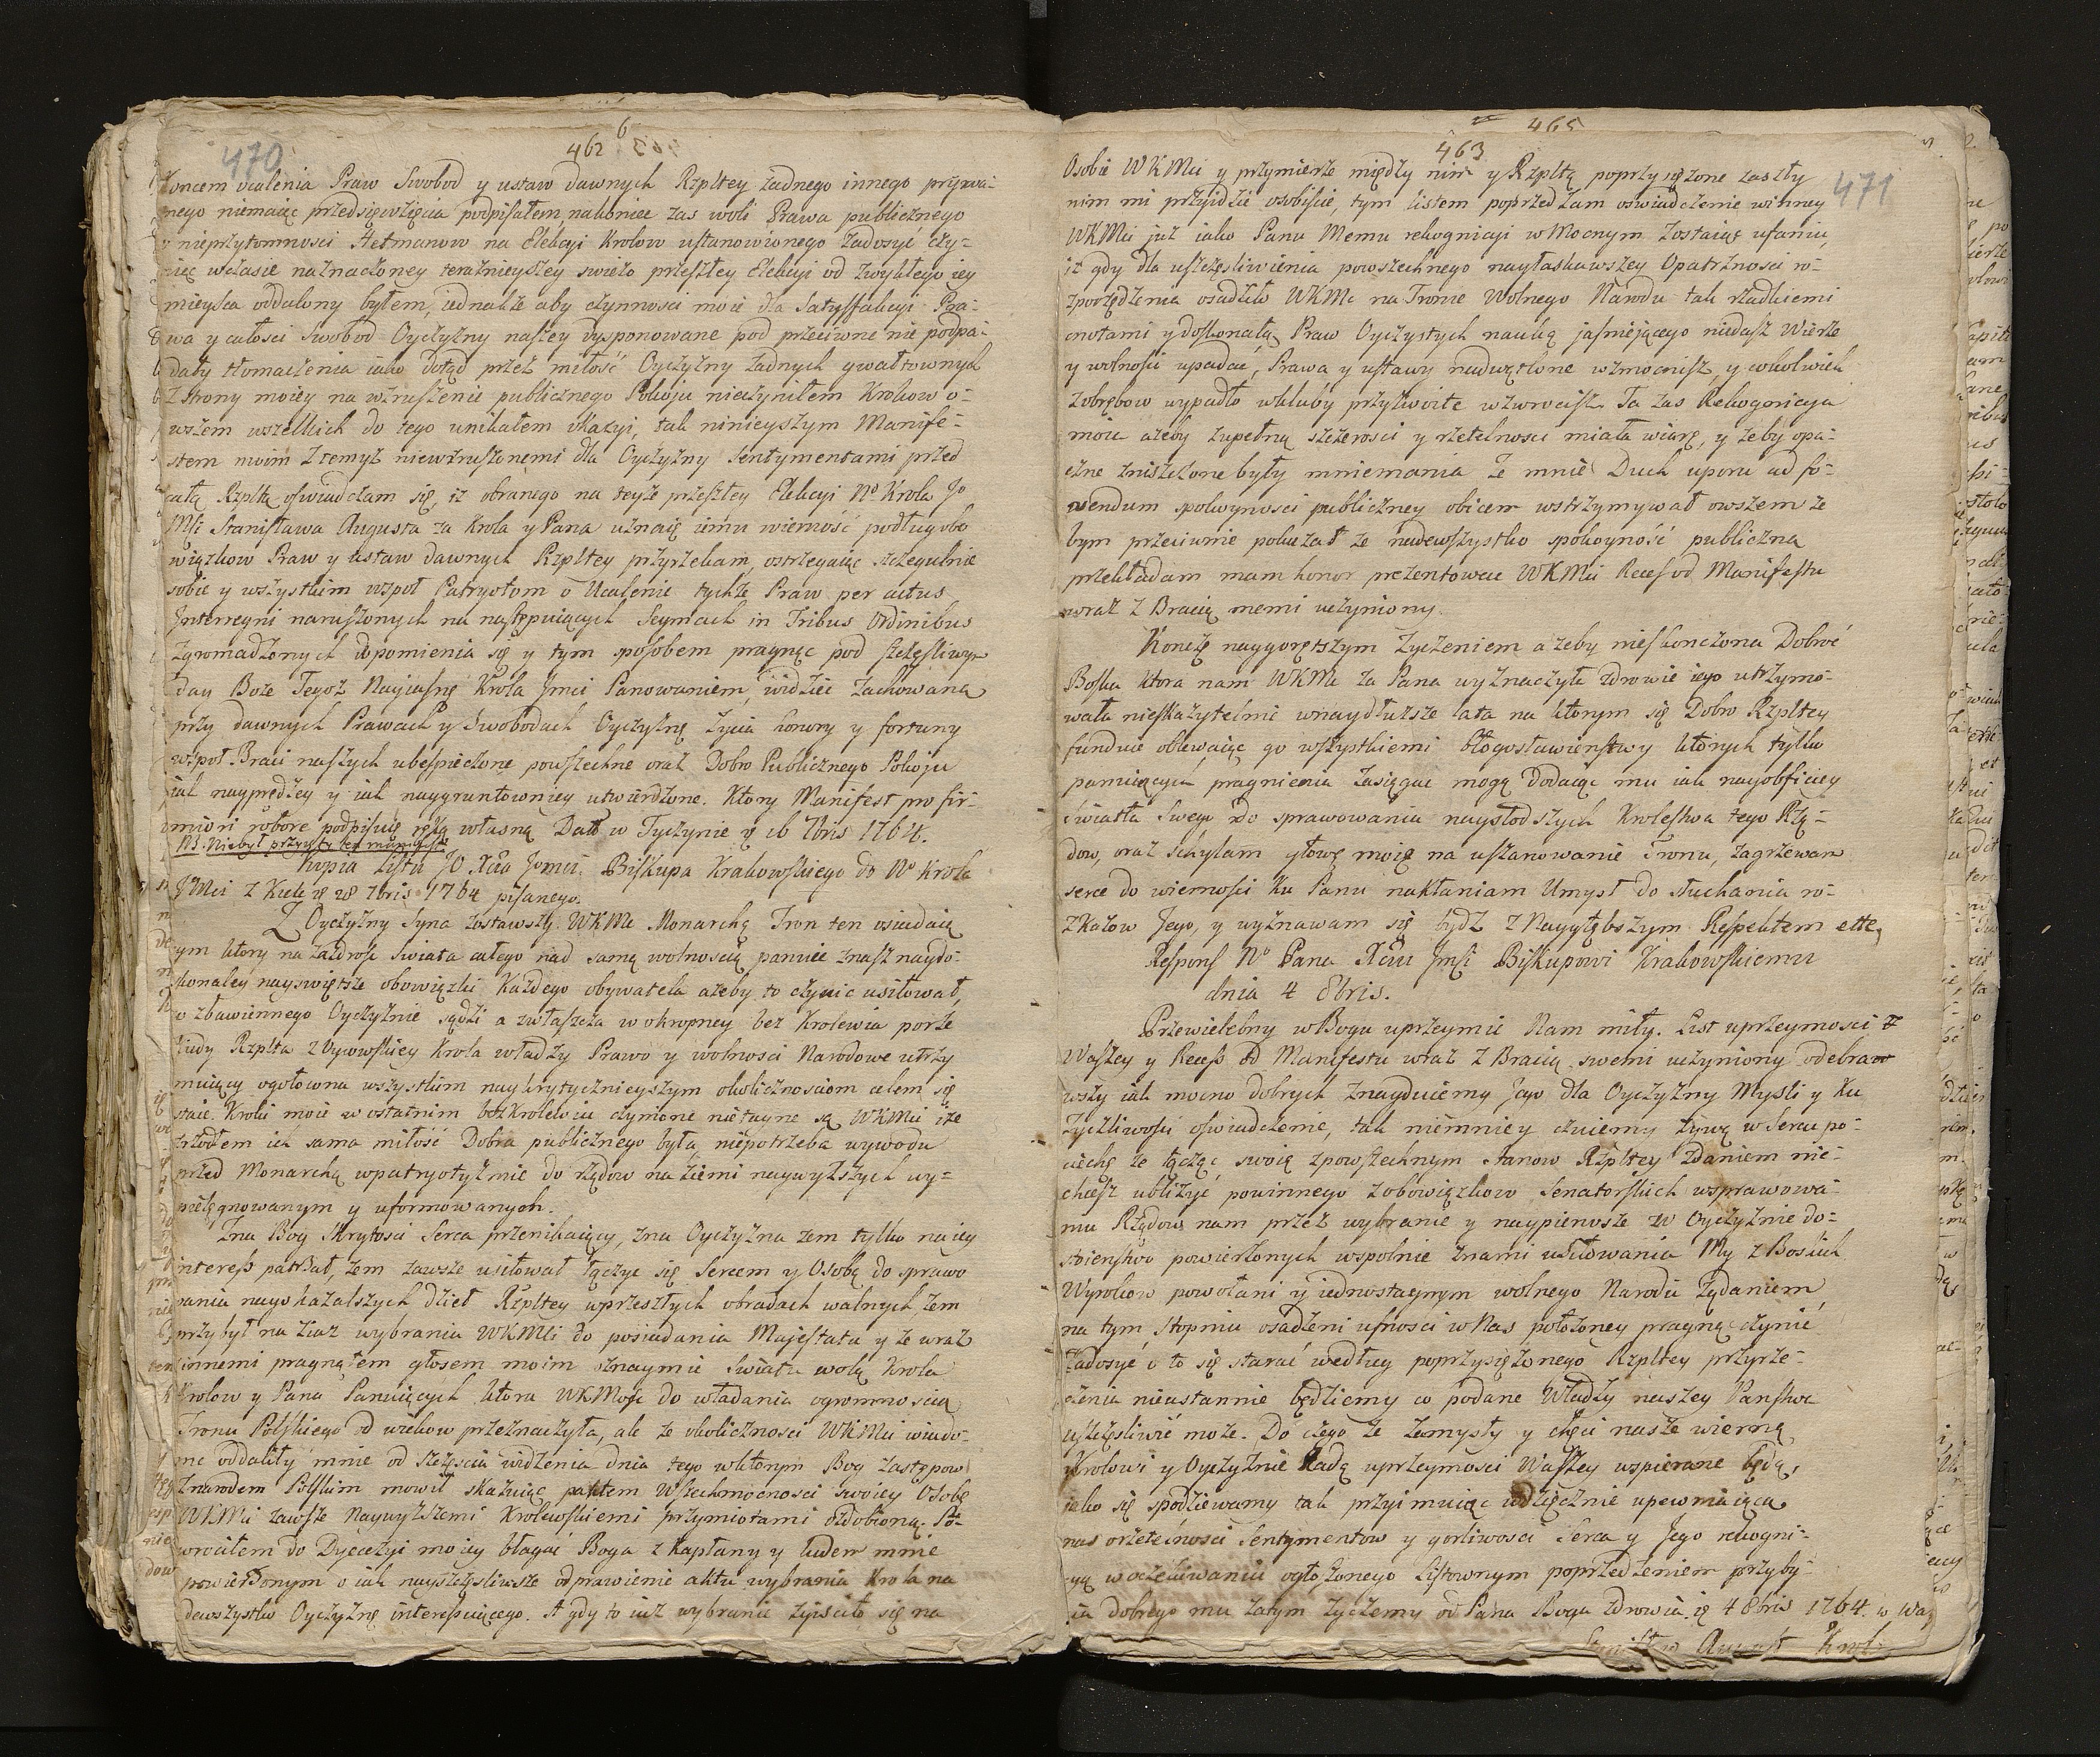 6
462
470
koncem ocalenia Praw Swobod y ustaw dawnych Rzpltey żadnego innego prywa-
nego niemaiąc przedsięwzięcia podpisałem, nakoniec zas woli Prawa publicznego
o nieprzytomnosci Hetmanow na Elekcyi Krolow ustanowionego zadosyć czy-
niąc wczasie naznaczoney teraznieyszey swieżo przeszłey Elekcyi od zwykłego iey
mieysca oddalony byłem, iednakże aby czynnosci moie dla Satysfakcyi Pra-
wa y całosci Swobod Oyczyzny naszey dysponowane pod przeciwne nie podpa-
dały tłomaczenia iako dotąd przez miłość Oyczyzny żadnych gwałtownych
Z strony moiey na wzruszenie publicznego Pokoju nieczyniłem Krokow o-
wszem wszelkich do tego unikałem okazyi, tak ninieyszym Manife-
stem moim z temyż niewzruszonemi dla Oyczyzny Sentymentami przed
całą Rzpltą oswiadczam się, iż obranego na teyże przeszłey Elekcyi No Krola Jo
Mci Stanisława Augusta za Krola y Pana uznaię iemu wierność podług obo
wiązkow Praw y ustaw dawnych Rzpltey przyrzekam, ostrzegaiąc szczegulnie
sobie y wszystkim wspoł Patryotom o Ucalenie tychże Praw per actus
Interregni naruszonych na następuiących Seymach in Tribus Ordinibus
zgromadzonych dopomienia się y tym sposobem pragnąc pod szczęsliwym
day Boże Tegoż Nayiasnę Krola Jmci Panowaniem, widzieć zachowaną
przy dawnych Prawach y Swobodach Oyczyznę życia honory y fortuny
wspoł Braci naszych ubespieczone powszechne oraz Dobro Publicznego Pokoju
iak nayprędzey y iak naygruntowniey utwierdzone. Ktory Manifest pro fir-
miori robore podpisuię ręką własną Datt w Tyczynie 16 7bris 1764.
NB. Niebył przyięty ten manifest
Kopia Listu JO Xcia Jmci Biskupa Krakowskiego do No Krola
JMci z Kielc 28 7bris 1764 pisanego.
Z Oyczyzny Syna zostawszy WKMc Monarchą Tron ten osiadaią
cym ktory na zazdrość swiata całego nad samą wolnoscią panuie znasz naydo-
skonaley nayswiętsze obowiązki Każdego obywatela ażeby to czynic usiłował,
co zbawiennego Oyczyznie sądzi a zwłaszcza w okropney bez Krolewia porze
kiedy Rzplta z Oycowskiey Krola władzy Prawo y wolnosci Narodowe utrzy
muiący ogołocona wszystkim naykrytycznieyszym okolicznosciom celem się
staie. Kroki moie w ostatnim bezkrolewiu czynione nietayne są WKMci iże
zrzodłem ich sama miłość Dobra publicznego była niepotrzeba wywodu
przed Monarchą w patryotyzmie do rządow na ziemi naywyższych wy-
pielęgnowanym y uformowanych.
Zna Bog Skrytosci Serca przenikaiący, zna Oyczyzna zem tylko na iey
interess patrzał, żem zawsze usiłował łączyc się Sercem y Osobą do sprawo
wania nayokazalszych dzieł Rzpltey w przeszłych obradach walnych, żem
przybył na ziazd wybrania WKMci do posiadania Majestatu y że wraz
z innemi pragnąłem głosem moim oznaymic Swiatu wolą Krola
Krolow y Pana Panuiących, ktora WKMośc do władania ogromnoscią
Tronu Polskiego od wiekow przeznaczyła, ale że okolicznosci WKMci wiado-
me oddaliły mnie od szczęscia widzenia dnia tego w ktorym Bog zastępow
z narodem Polskim mowił skazuiąc palcem Wszechmocnosci swoiey Osobę
WKMci zawsze Naywyższemi Krolewskiemi przymiotami ozdobioną. Po-
wrociłem do Dyecezyi moiey błagać Boga z Kapłany y ludem mnie
powierzonym o iak nayszczęsliwsze odprawienie aktu wybrania Krola na
dewszystko Oyczyznę interesuiącego. A gdy to iuż wybranie zyisciło się na
465
463
471
Osobie WKMci y przymierze między nim y Rzpltą poprzysiężone zaszły
nim mi przyidzie osobiscie, tym listem poprzedzam oswiadczenie winney
WKMci już iako Panu Memu rekognicyi w Mocnym zostaiąc ufaniu,
iż gdy dla uszczęsliwienia powszechnego nayłaskawszey Opatrznosci ro-
zporządzenia osadziło WKMc na Tronie Wolnego Narodu tak rzadkiemi
cnotami y doskonałą Praw Oyczystych nauką jasniejącego niedasz Wierze
y wolnosci upadać, Prawa y ustawy nadwątlone wzmocnisz, y cokolwiek
z obrębow wypadło w kluby przyzwoite wzwrocisz. Ta zas Rekognicya
moia ażeby zupełną szczerosci y rzetelnosci miała wiarę, y żeby opa-
czne zniszczone były mniemania że mnie Duch uporu ad fo-
vendum spokoynosci publiczney obicem wstrzymywał owszem że
bym przeciwnie pokazał że nadewszystko spokoyność publiczną
przekładam mam honor prezentować WKMci Reces od Manifestu
wraz z Bracią memi uczyniony.
Konczę naygorętszym życzeniem ażeby nieskończona Dobroć
Boska ktora nam WKMc za Pana wyznaczyła zdrowie iego utrzymo-
wała nieskazytelnie w naydłuższe lata na ktorym się Dobro Rzpltey
funduie oblewaiąc go wszystkiemi błogosławienstwy ktorych tylko
panuiących pragnienia zasięgac mogą dodaiąc mu iak nayobficiey
Swiatła Swego do sprawowania naysłodszych Krolestwa tego Rzą-
dow, oraz schylam głowę moię na uszanowanie Tronu, zagrzewam
serce do wiernosci Ku Panu nakłaniam Umysł do słuchania ro-
zkazow Jego, y wyznawam się bydz z Naygłębszym Respektem ettc,
Respons No Pana Xciu Jmsi Biskupowi Krakowskiemu
dnia 4 8bris.
Przewielebny w Bogu uprzeymie Nam miły. List uprzeymosci
Waszey y Recess od Manifestu wraz z Bracią swemi uczyniony odebra
wszy iak mocno dobrych znayduiemy Jego dla Oyczyzny Mysli y Ku
życzliwosci oswiadczenie, tak niemniey czuiemy żywą w Sercu po-
ciechę że łącząc swoię z powszechnym stanow Rzpltey zdaniem nie-
chcesz ubliżyć powinnego z obowiązkow Senatorskich w sprawowa-
niu Rządow nam przez wybranie y naypierwsze w Oyczyznie do-
stoienstwo powierzonych wspolnie z nami usiłowania My z Boskich
Wyrokow powołani y iednostaynym wolnego Narodu żądaniem
na tym Stopniu osadzeni ufnosci w Nas położoney pragną czynić
zadosyć o to się starać według poprzysiężonego Rzpltey przyrze-
czenia nieustannie będziemy co podane Władzy naszey Panstwa
uszczęsliwić może. Do czego że zamysły y chęci nasze wierną
Krolowi y Oyczyznie Radą uprzeymosci Waszey wspierane będą,
jako się spodziewamy tak przyimuiąc wdzięcznie upewniaiąca
nas o rzetelnosci Sentymentow y gorliwosci Serca y Jego rekogni-
cyą w oczekiwaniu ogłoszonego Listownym poprzedzeniem przyby-
cia dobrego mu zatym życzemy od Pana Boga zdrowia. 4 8bris 1764. w Wa
Stanisław August Krol